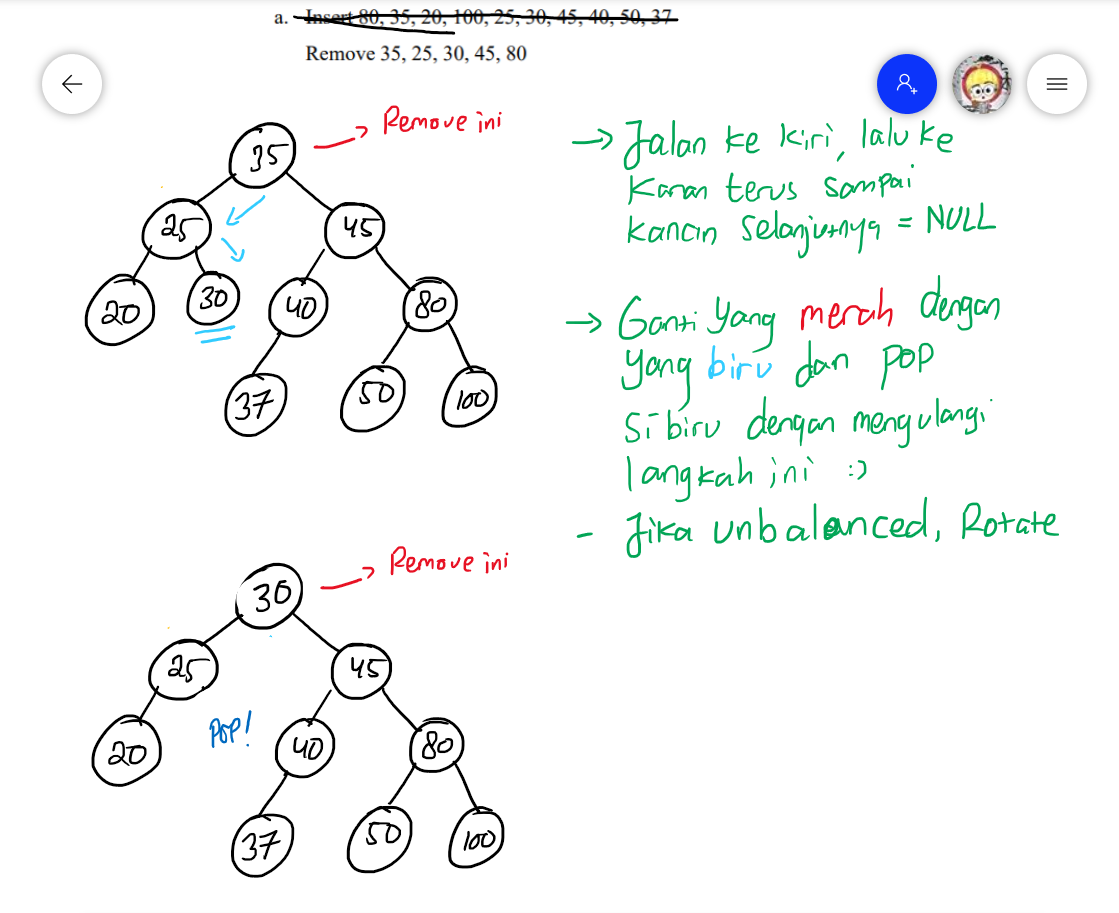 a. Insert 80, 35, 20, 100, 25, 30, 45, 40, 50, 37
Remove 35, 25, 30, 45, 80
Remove ini
35
25
45
20
30
40
80
37
50
100
→ Jalan ke kiri, lalu ke
Kanan terus sampai
kanan selanjutnya = NULL
→ Ganti yang merah dengan
yang biru dan pop
si biru dengan mengulangi
langkah ini :)
- Jika unbalanced, Rotate
Remove ini
30
25
45
20
POP!
40
80
37
50
100